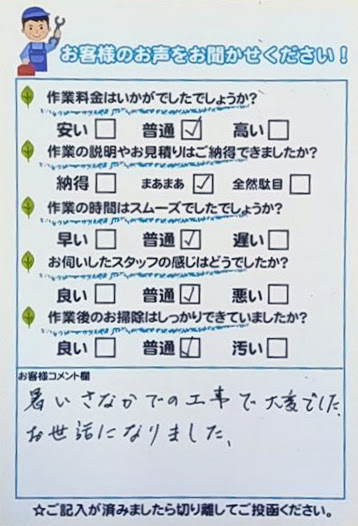 お客様のお声をお聞かせください！
作業料金はいかがでしたでしょうか?
安い □ 普通 ☑ 高い □
作業の説明やお見積りはご納得できましたか?
納得 □ まあまあ ☑ 全然駄目 □
作業の時間はスムーズでしたでしょうか?
早い □ 普通 ☑ 遅い □
お伺いしたスタッフの感じはどうでしたか?
良い □ 普通 ☑ 悪い □
作業後のお掃除はしっかりできていましたか?
良い □ 普通 ☑ 汚い □
お客様コメント欄
暑いさなかでの工事で大変でした、
お世話になりました、
☆ご記入が済みましたら切り離してご投函ください。